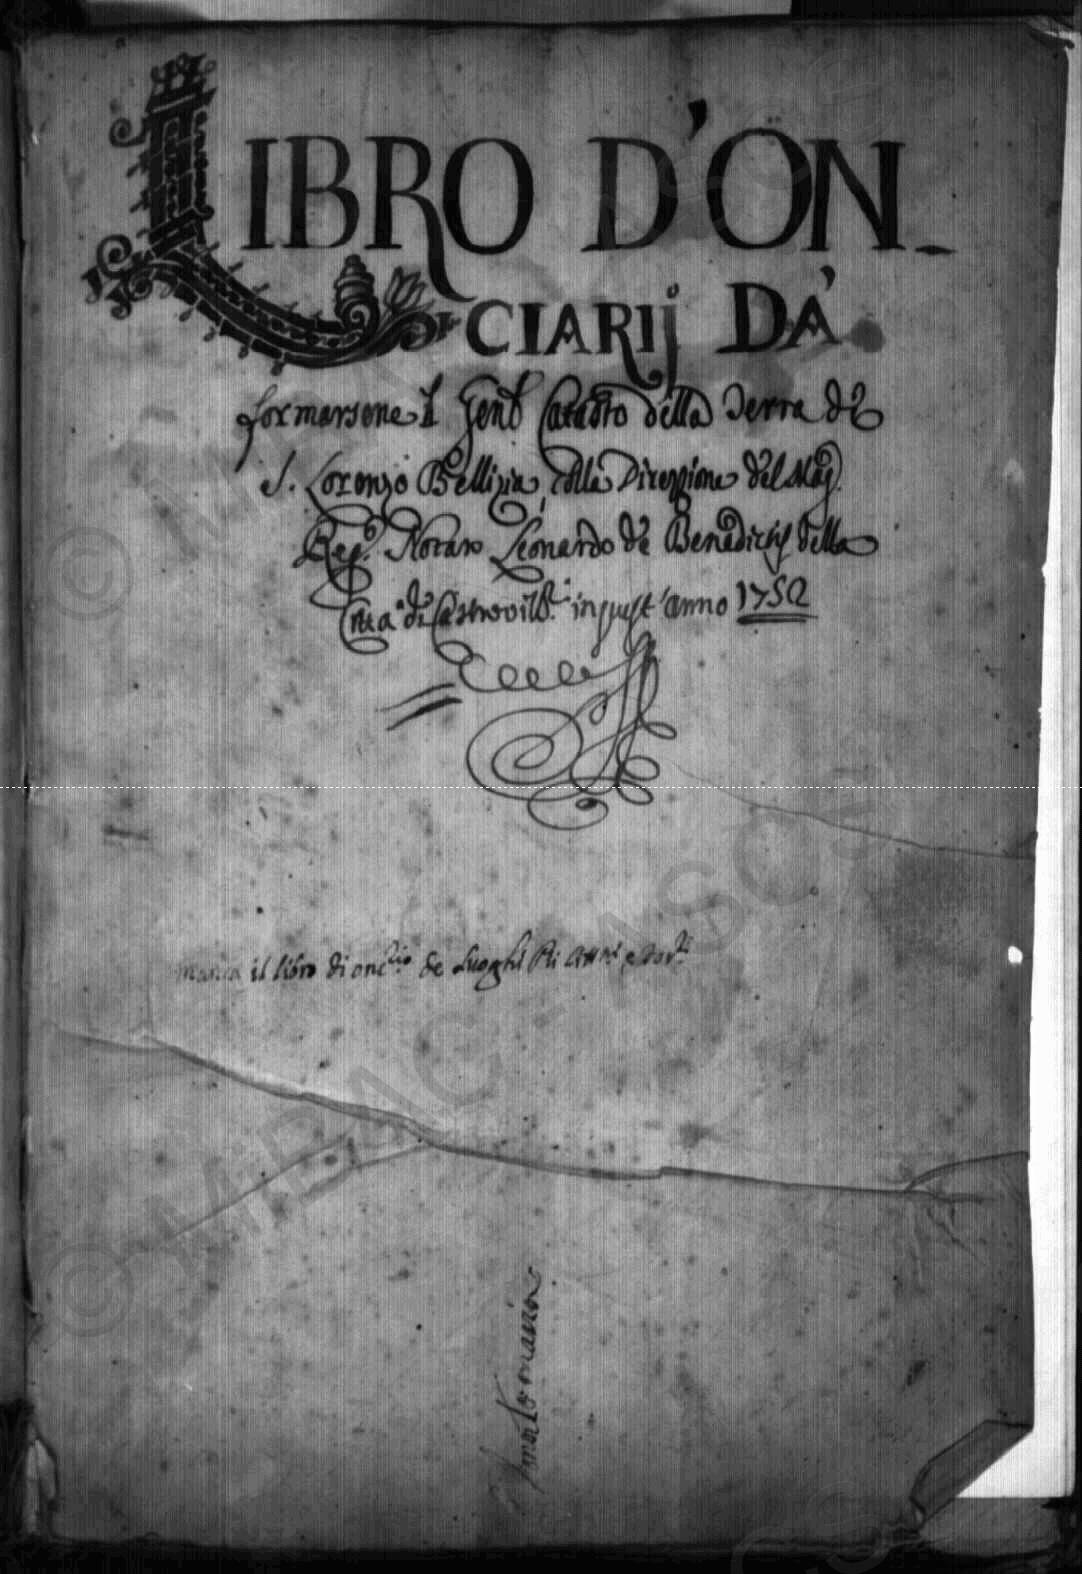 LIBRO D'ON-
CIARIJ DA'
formarsene il Gen.l Catasto della Terra di
S. Lorenzo Bellizia, colla Direzzione del Mag.
Reg.o Notaro Leonardo de Benedictis della
Città di Castrovill.i in quest'anno 1752
manca il libro di onc.rio de Luoghi Pii
© MIBAC - ASCS
© MIBAC - ASCS